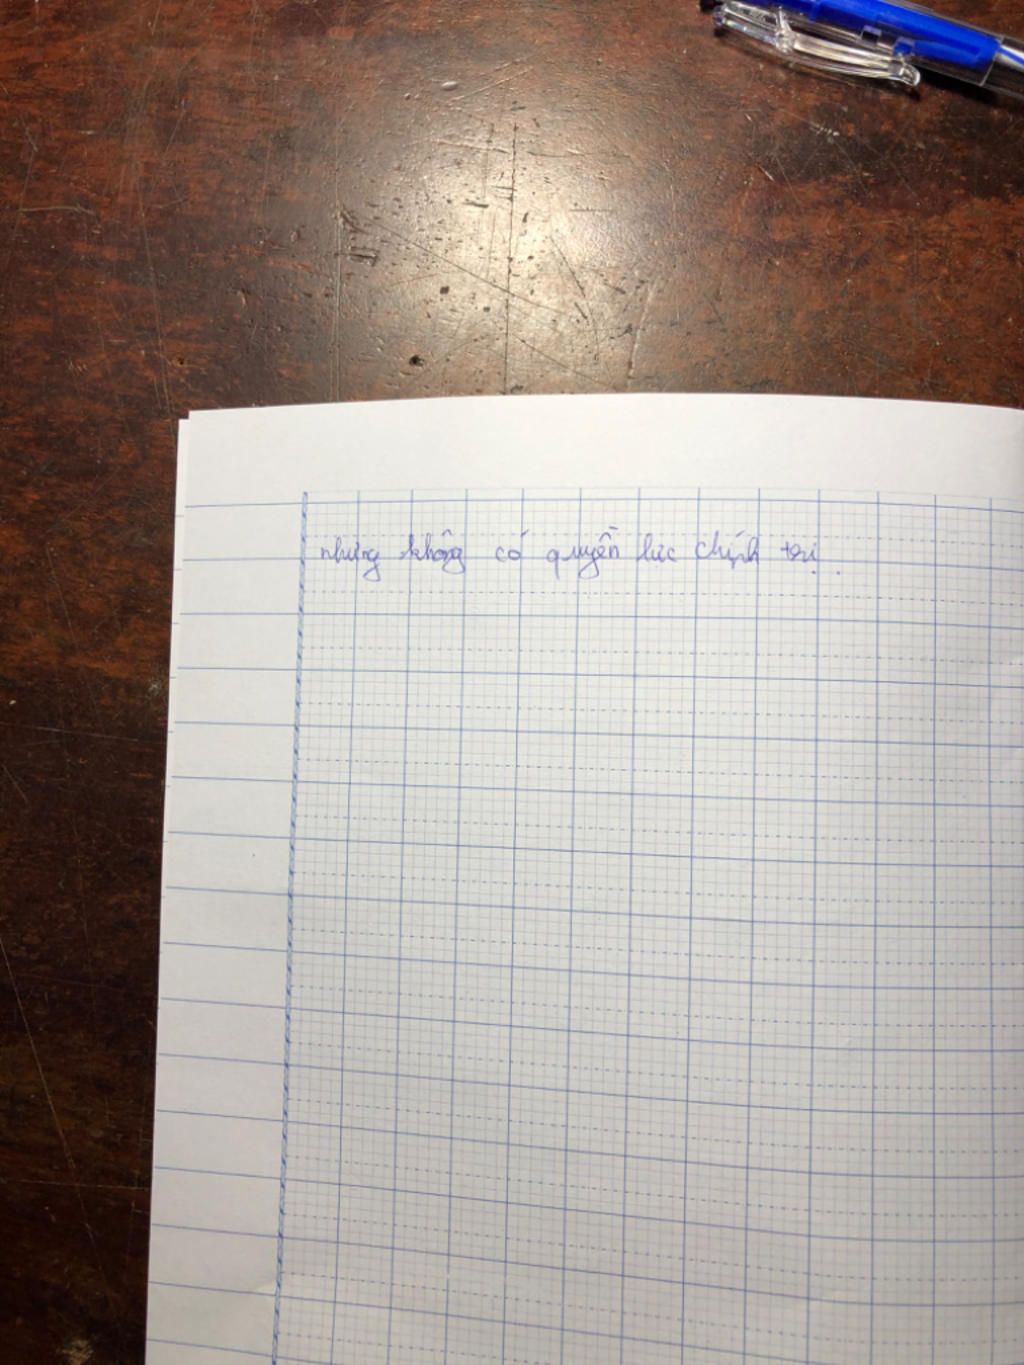 nhưng không có quyền lực chính trị.